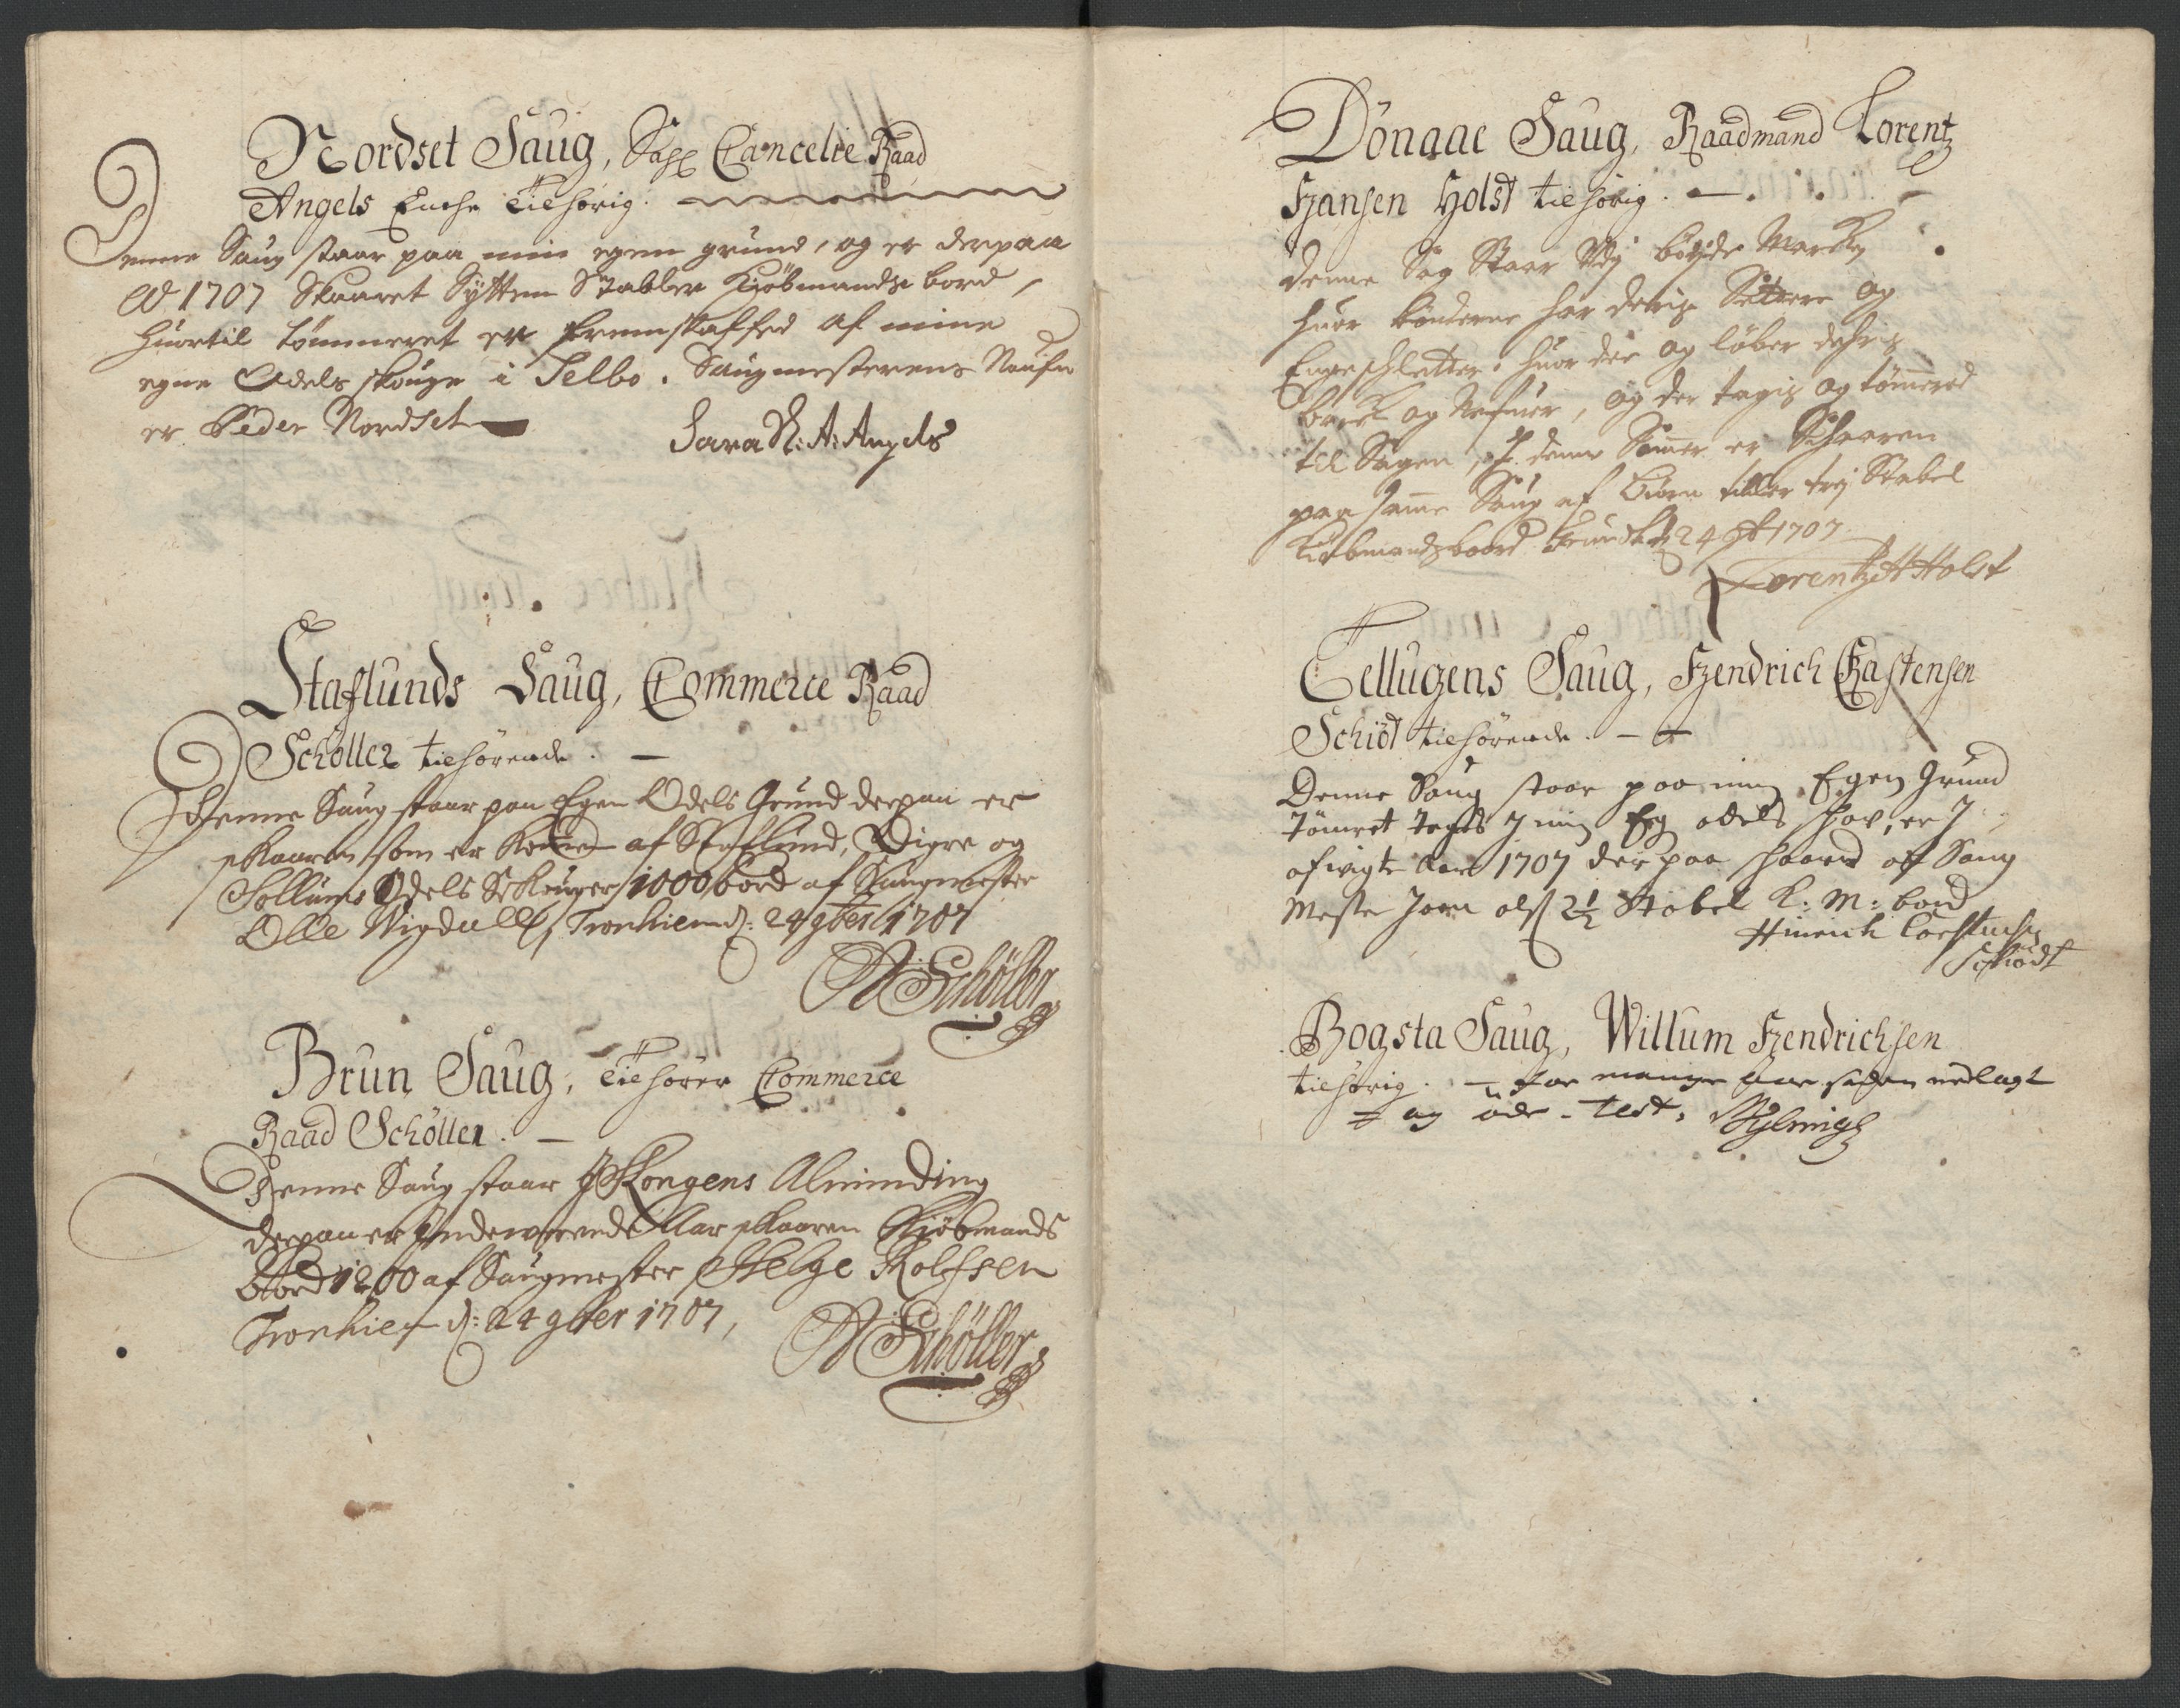 Nordset Saug, Sahl Cancelie Raad
Angels Enche tilhörig.
Denne Saug staar paa min egen grund, og er derpaa
Ao 1707 Skaaret Sÿtten Stabler Kiöbmands bord,
huortil tömmeret er fremskaffed af mine
egne Odels skouge i Selbo. Saugmesterens Naufn
er Peder Nordset
Sara S: A: Angels
Staflunds Saug, Commerce Raad
Schöller tilhörende.
Denne Saug staar paa Egen Odels Grund derpaa er
skaaren som er Kommen af Staflund, Digre og
Sollums Odels Skouger 1000 bord af Saugmester
Olle Wigdall, Tronhiem d: 24 9ber 1707
Schöller
Brun Saug, Tilhörer Commerce
Raad Schöller.
Denne Saug staar J Kongens Alminding
derpaa er Jndewerende Aar skaaren Kiöbmands
Bord 1200 af Saugmester Helge Rolfsen
Tronhiem d: 24 9ber 1707,
Schöller
Dönaae Saug, Raadmand Lorentz
Hansen Holst tilhörig.
denne Sag Staar Udj bÿgde Marken
huor bönderne har deris Settere og
Engeschletter, huor der og löber dehris
og, og der tagis og tömmered
til Sagen, J denne Sommer er Schaaren
paa samme Saug af Biörn tiller trej Stabel
Kiöbmandsboord 24 9b 1707
Lorentz H Holst
Tellugens Saug, Hendrich Castensen
Schiöt tilhörende.
Denne Saug staar paa min Egen Grund
Tömret tages J min Eg odels skov, er J
afvigte Aar 1707 der paa skaared af Saug
Mester Joen 2½ Stabel K: M: bord
Hinrich Carstensen
Schiödt
Bogsta Saug, Willum Hendrichsen
tilhörig. for mange Aar siden nedlagt
og öde - Test,